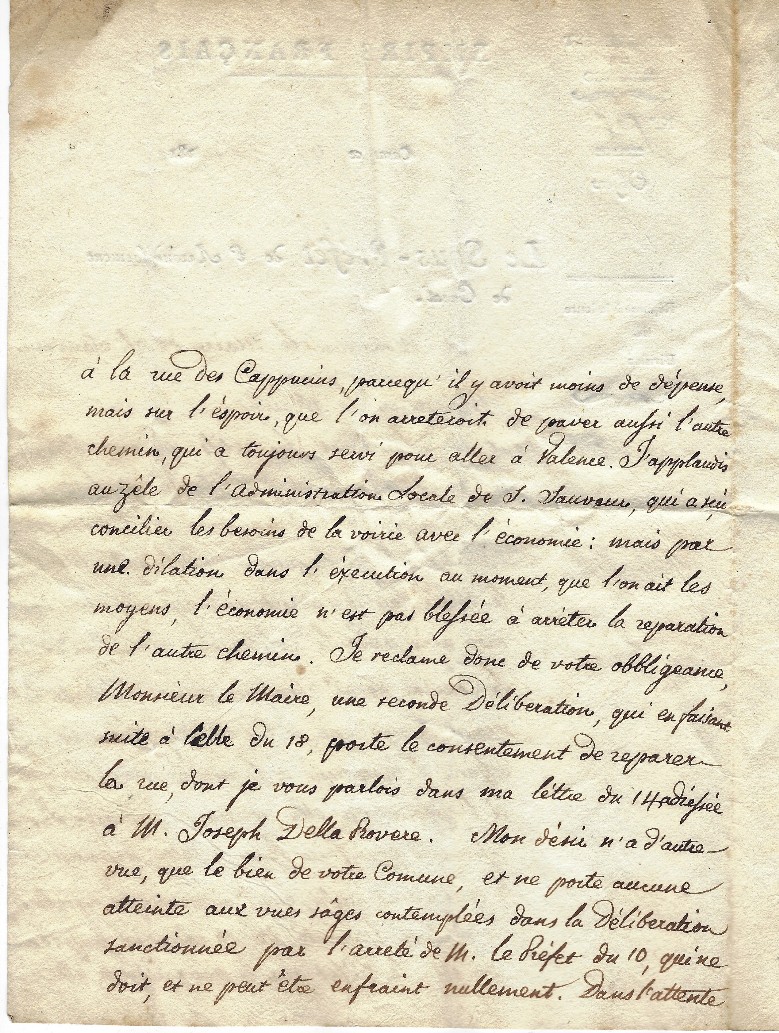 à la rue des Cappucins, parcequ' il y avoit moins de dépense,
mais sur l'éspoir, que l'on arreteroit de paver aussi l'autre
chemin, qui a toujours servi pour aller à Valence. J'applaudis
au zêle de l'Administration Locale de S. Sauveur, qui a sçu
concilier les besoins de la voirie avec l'économie: mais par
une dilation dans l'éxecution au moment, que l'on ait les
moyens, l'économie n'est pas blessée à arrêter la reparation
de l'autre chemin. Je reclame donc de votre obbligeance,
Monsieur le Maire, une seconde Déliberation, qui en faisant
suite à celle du 18, porte le consentement de reparer
la rue, dont je vous parlois dans ma léttre du 14 adressée
à M. Joseph Della Rovere. Mon désir n'a d'autre
vue, que le bien de votre Comune, et ne porte aucune
atteinte aux vues sâges contemplées dans la Déliberation
sanctionnée par l'arreté de M. le Préfet du 10, qui ne
doit, et ne peut être enfraint nullement. Dans l'attente